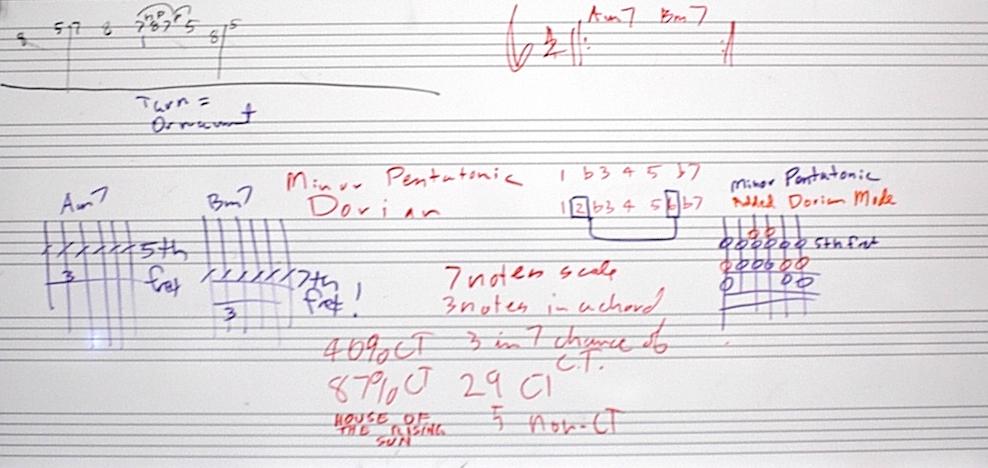 8 5 7 8 7 8 7 5 8 5
H P P
Am7 Bm7
Turn =
Ornament
Am7
Bm7
5th
fret
3
7th
fret!
3
Minor Pentatonic 1 b3 4 5 b7
Dorian 1 2 b3 4 5 6 b7
Minor Pentatonic
Added Dorian Mode
5th fret
7 notes scale
3 notes in a chord
40% CT 3 in 7 chance of
C.T.
87% CT 29 CT
HOUSE OF
THE RISING
SUN
5 non-CT